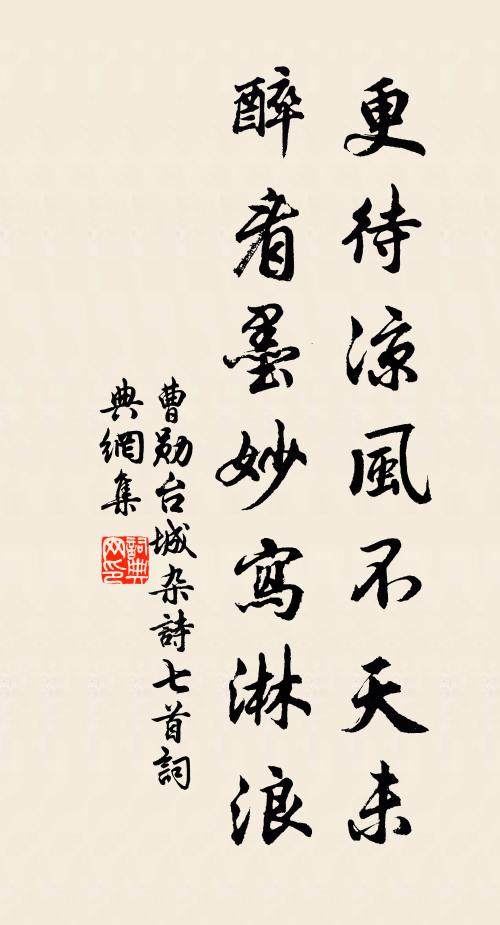 更待涼風不天未
醉看墨妙寫淋浪
曹勛台城杂詩七首詞
典網集
詞典网印